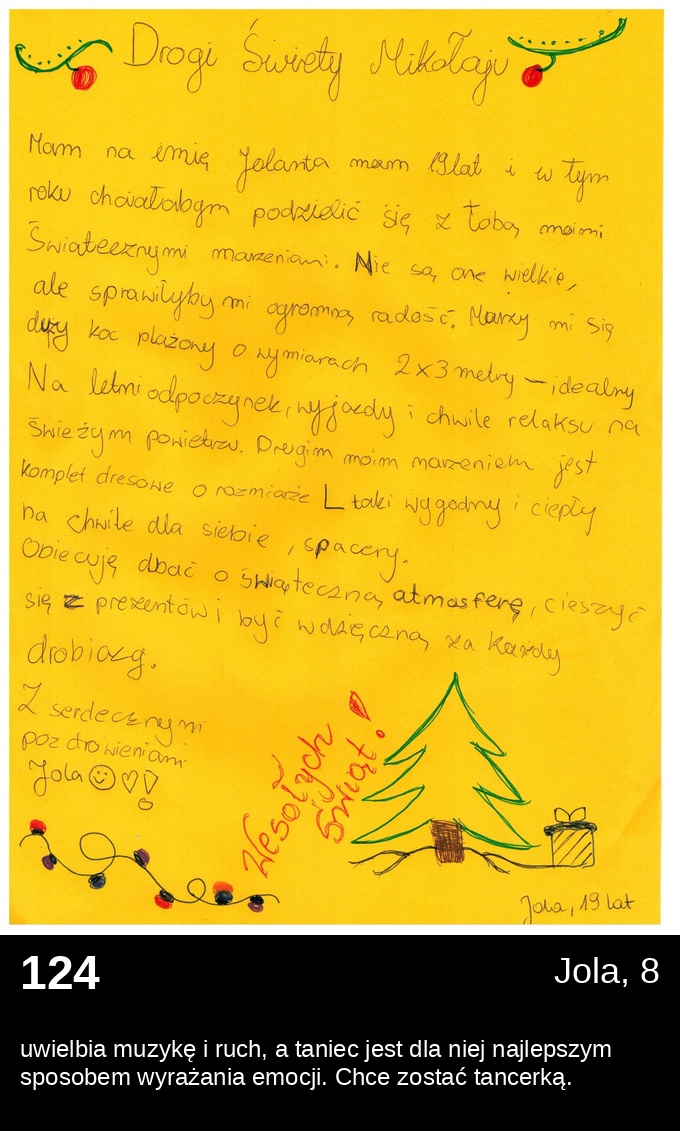 Drogi Święty Mikołaju
Mam na imię Jolanta mam 19lat i w tym
roku chciałabym podzielić się z Tobą moimi
Świątecznymi marzeniami. Nie są one wielkie,
ale sprawiłyby mi ogromną radość. Marzy mi się
duży koc plażony o wymiarach 2x3 metry – idealny
Na letni odpoczynek, wyjazdy i chwile relaksu na
świeżym powietrzu. Drugim moim marzeniem jest
komplet dresowe o rozmiarze L taki wygodny i ciepły
na chwile dla siebie, spacery.
Obiecuję dbać o świąteczną atmosferę, cieszyć
się z prezentów i być wdzięczną za każdy
drobiazg.
Z serdecznymi
pozdrowieniami
Jola
Wesołych
Świąt!
Jola, 19 lat
124
Jola, 8
uwielbia muzykę i ruch, a taniec jest dla niej najlepszym
sposobem wyrażania emocji. Chce zostać tancerką.